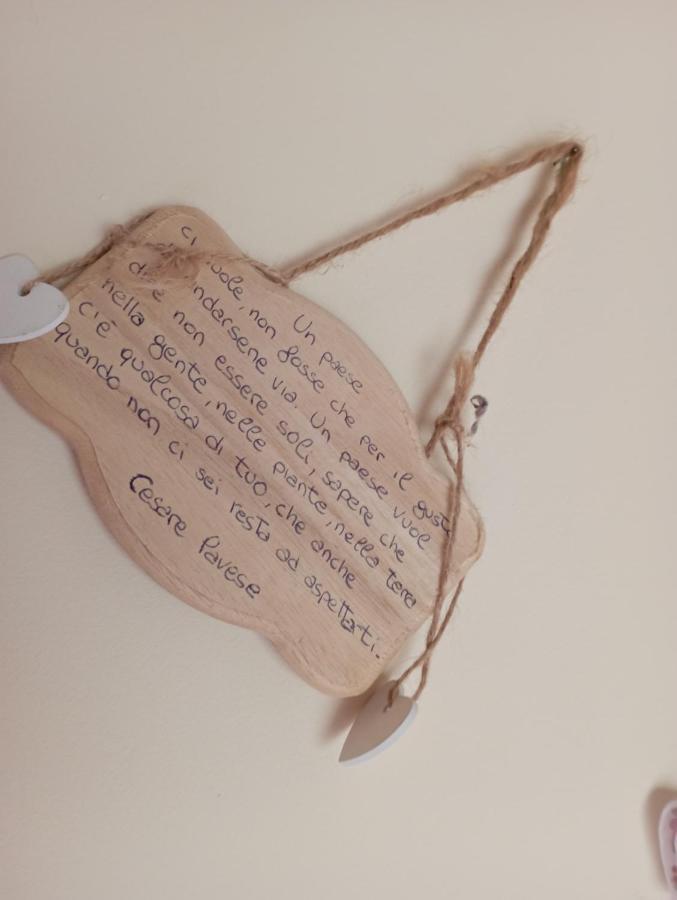 Un paese
ci vuole, non fosse che per il gust
di andarsene via. Un paese vuol
dire non essere soli, sapere che
nella gente, nelle piante, nella terra
c'è qualcosa di tuo, che anche
quando non ci sei resta ad aspettarti.
Cesare Pavese